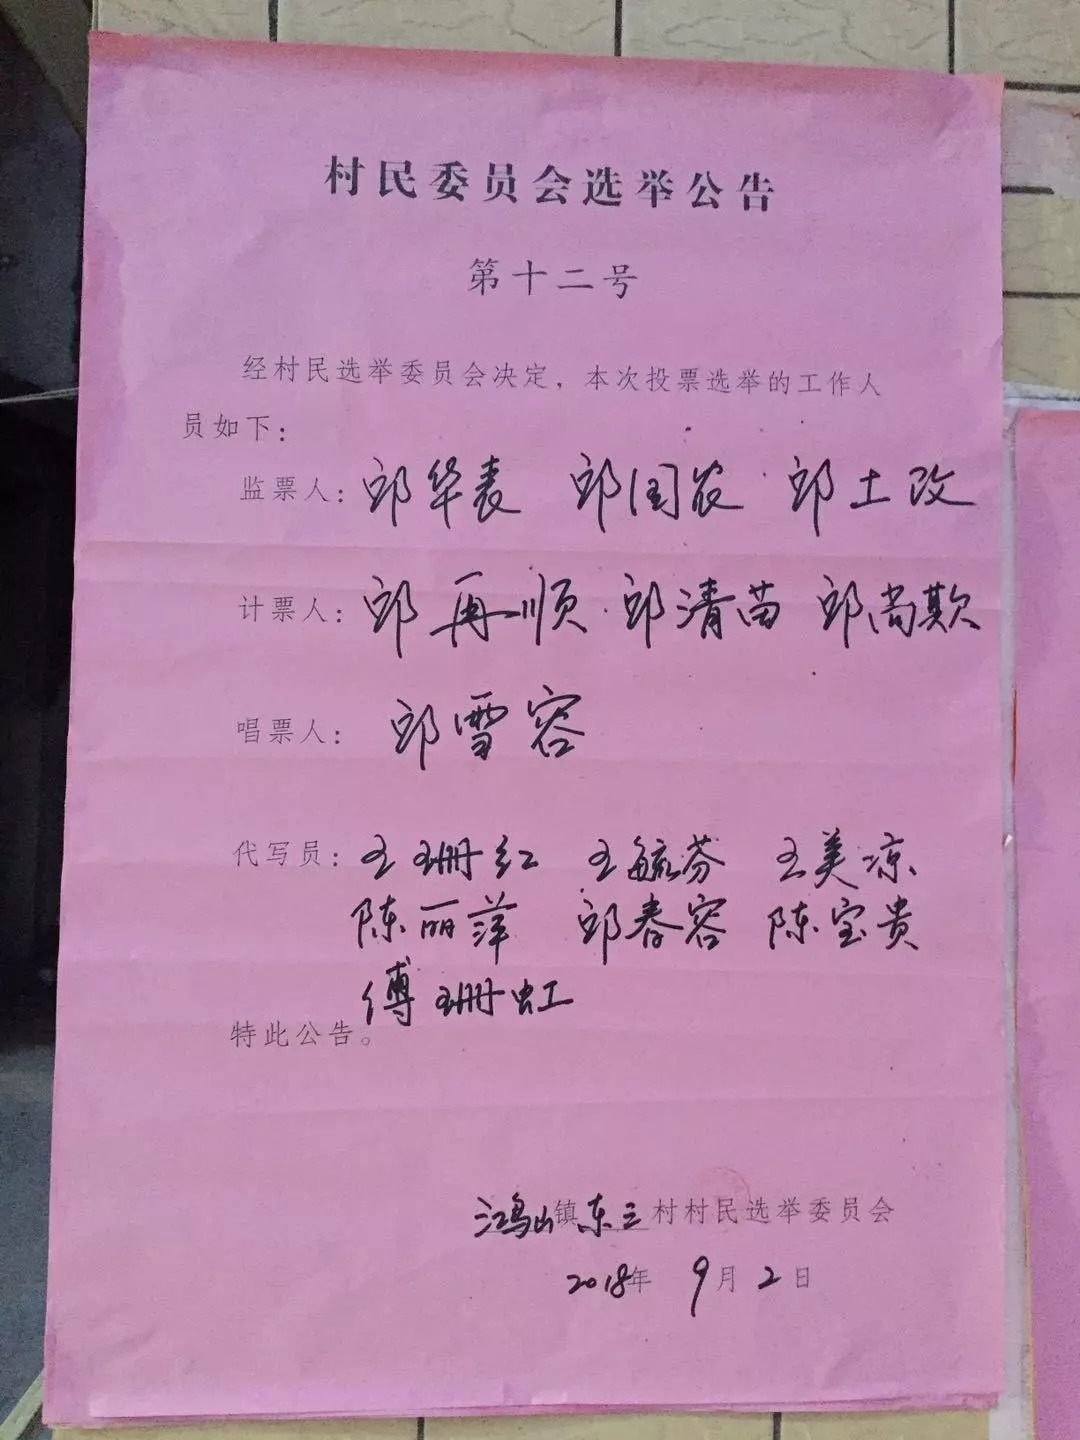 村民委员会选举公告
第十二号
经村民选举委员会决定，本次投票选举的工作人
员如下：
监票人：邱华表 邱国农 邱土改
计票人：邱再顺 邱清苗 邱尚欺
唱票人：邱雪容
代写员：王珊红 王毓芬 王美凉
陈丽萍 邱春容 陈宝贵
傅珊虹
特此公告。
鸿山镇东三村村民选举委员会
2018年 9月2日